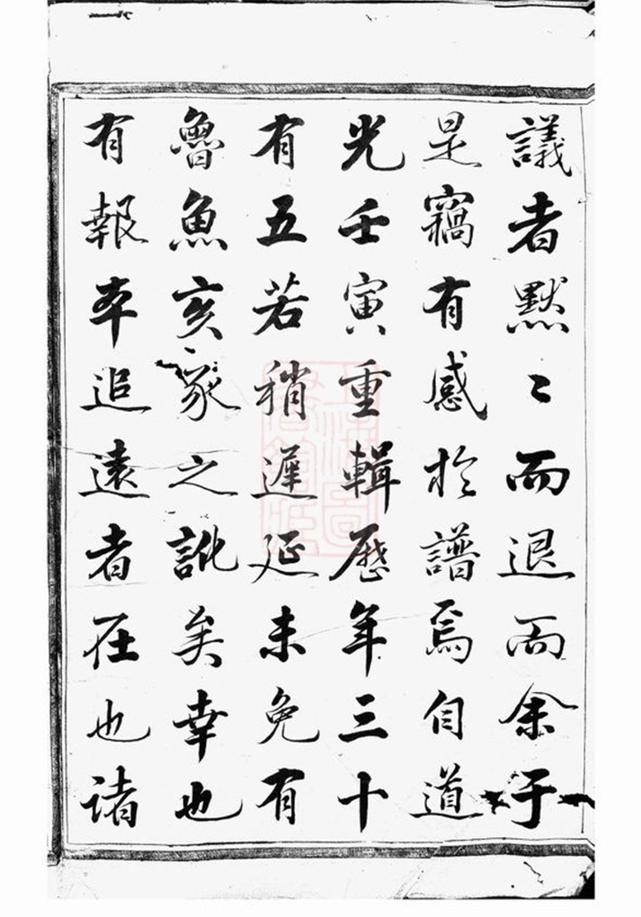 議者黙〻而退而余于
是竊有感於譜焉自道
光壬寅重輯歷年三十
有五若稍遲延未免有
魯魚亥豕之訛矣幸也
有報本追遠者在也诸